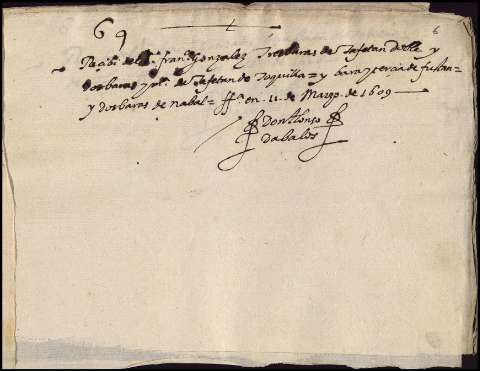 69
Recibi del Sr. franco Gonzalez Tres baras de Tafetan doble y
dos baras y mª. de Tafetan de Toquilla = y bara y tercia de fustan =
y dos baras de nabal = ffª. en 11 de Março de 1609
Don Alonso
Dabalos